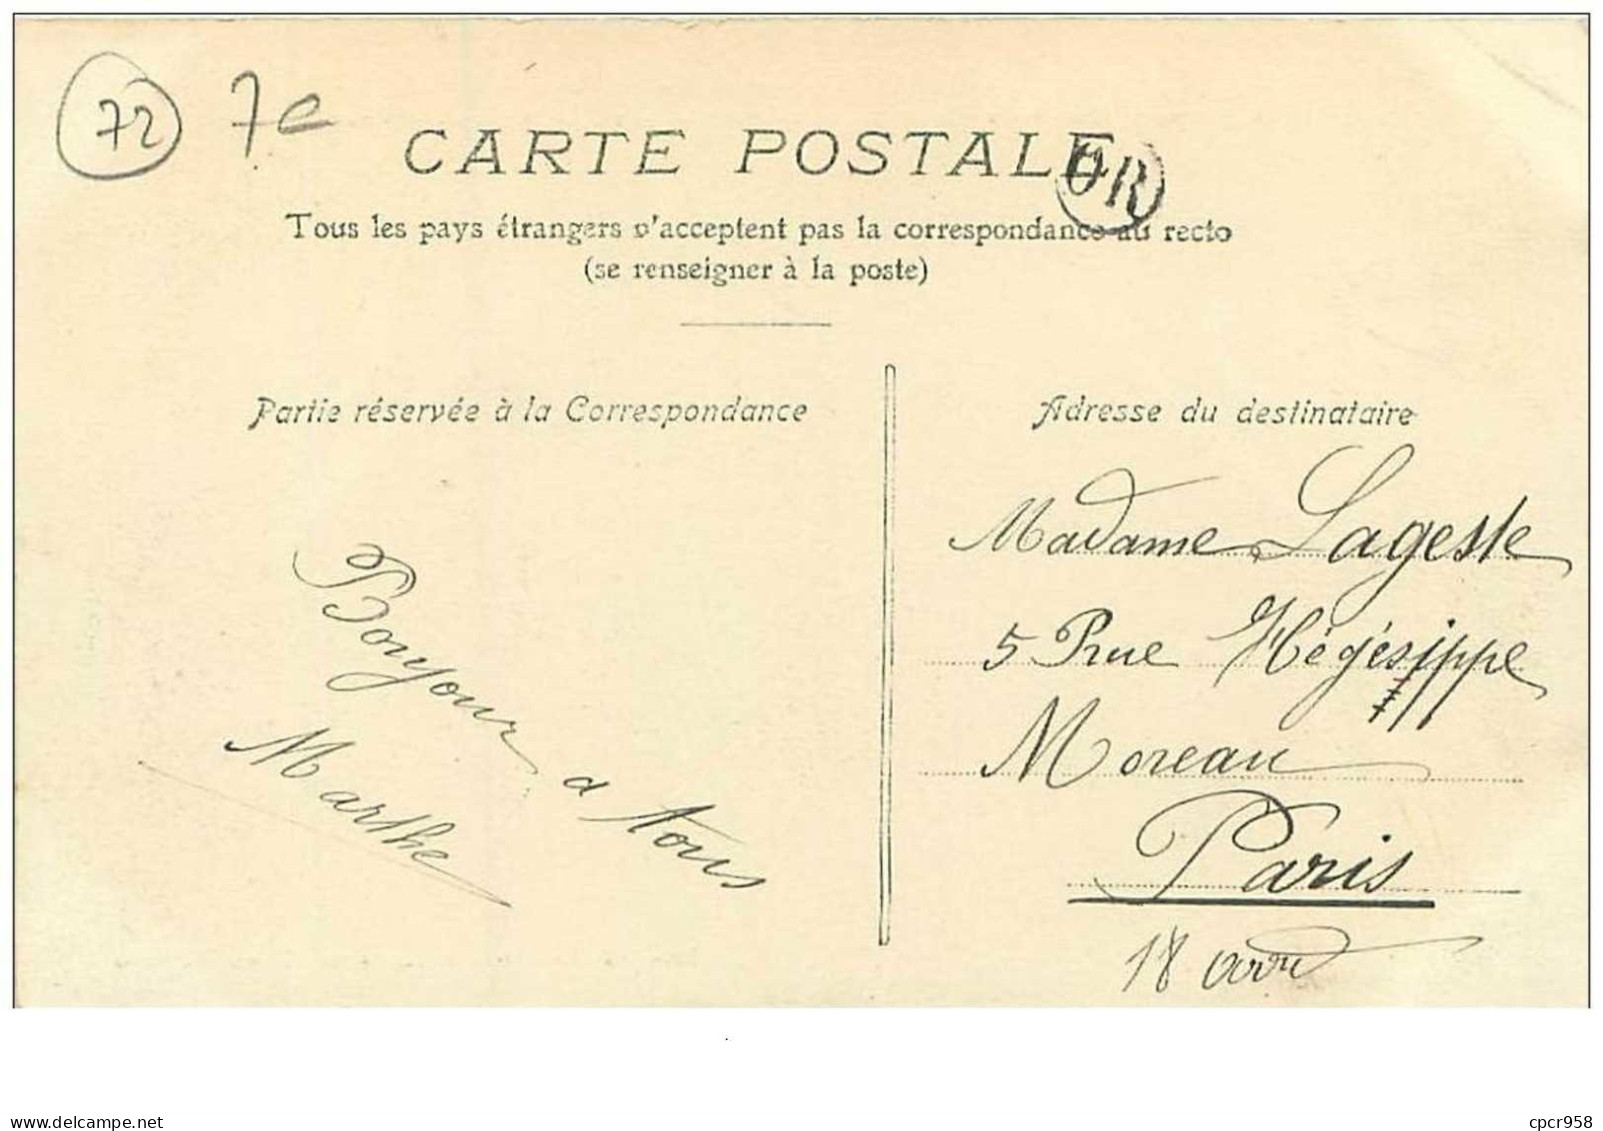 72 7e
CARTE POSTALE
OR
Tous les pays étrangers n'acceptent pas la correspondance au recto
(se renseigner à la poste)
Partie réservée à la Correspondance
Bonjour a tous
Marthe
Adresse du destinataire
Madame Lageste
5 Rue Hégésippe
Moreau
Paris
18 arr
delcampe.net
cpcr958